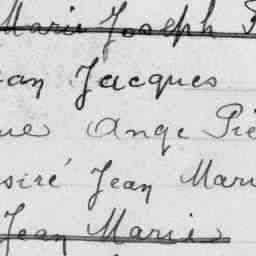 Marie Joseph
ean Jacques
ue Ange Pie
siré Jean Mari
Jean Marie